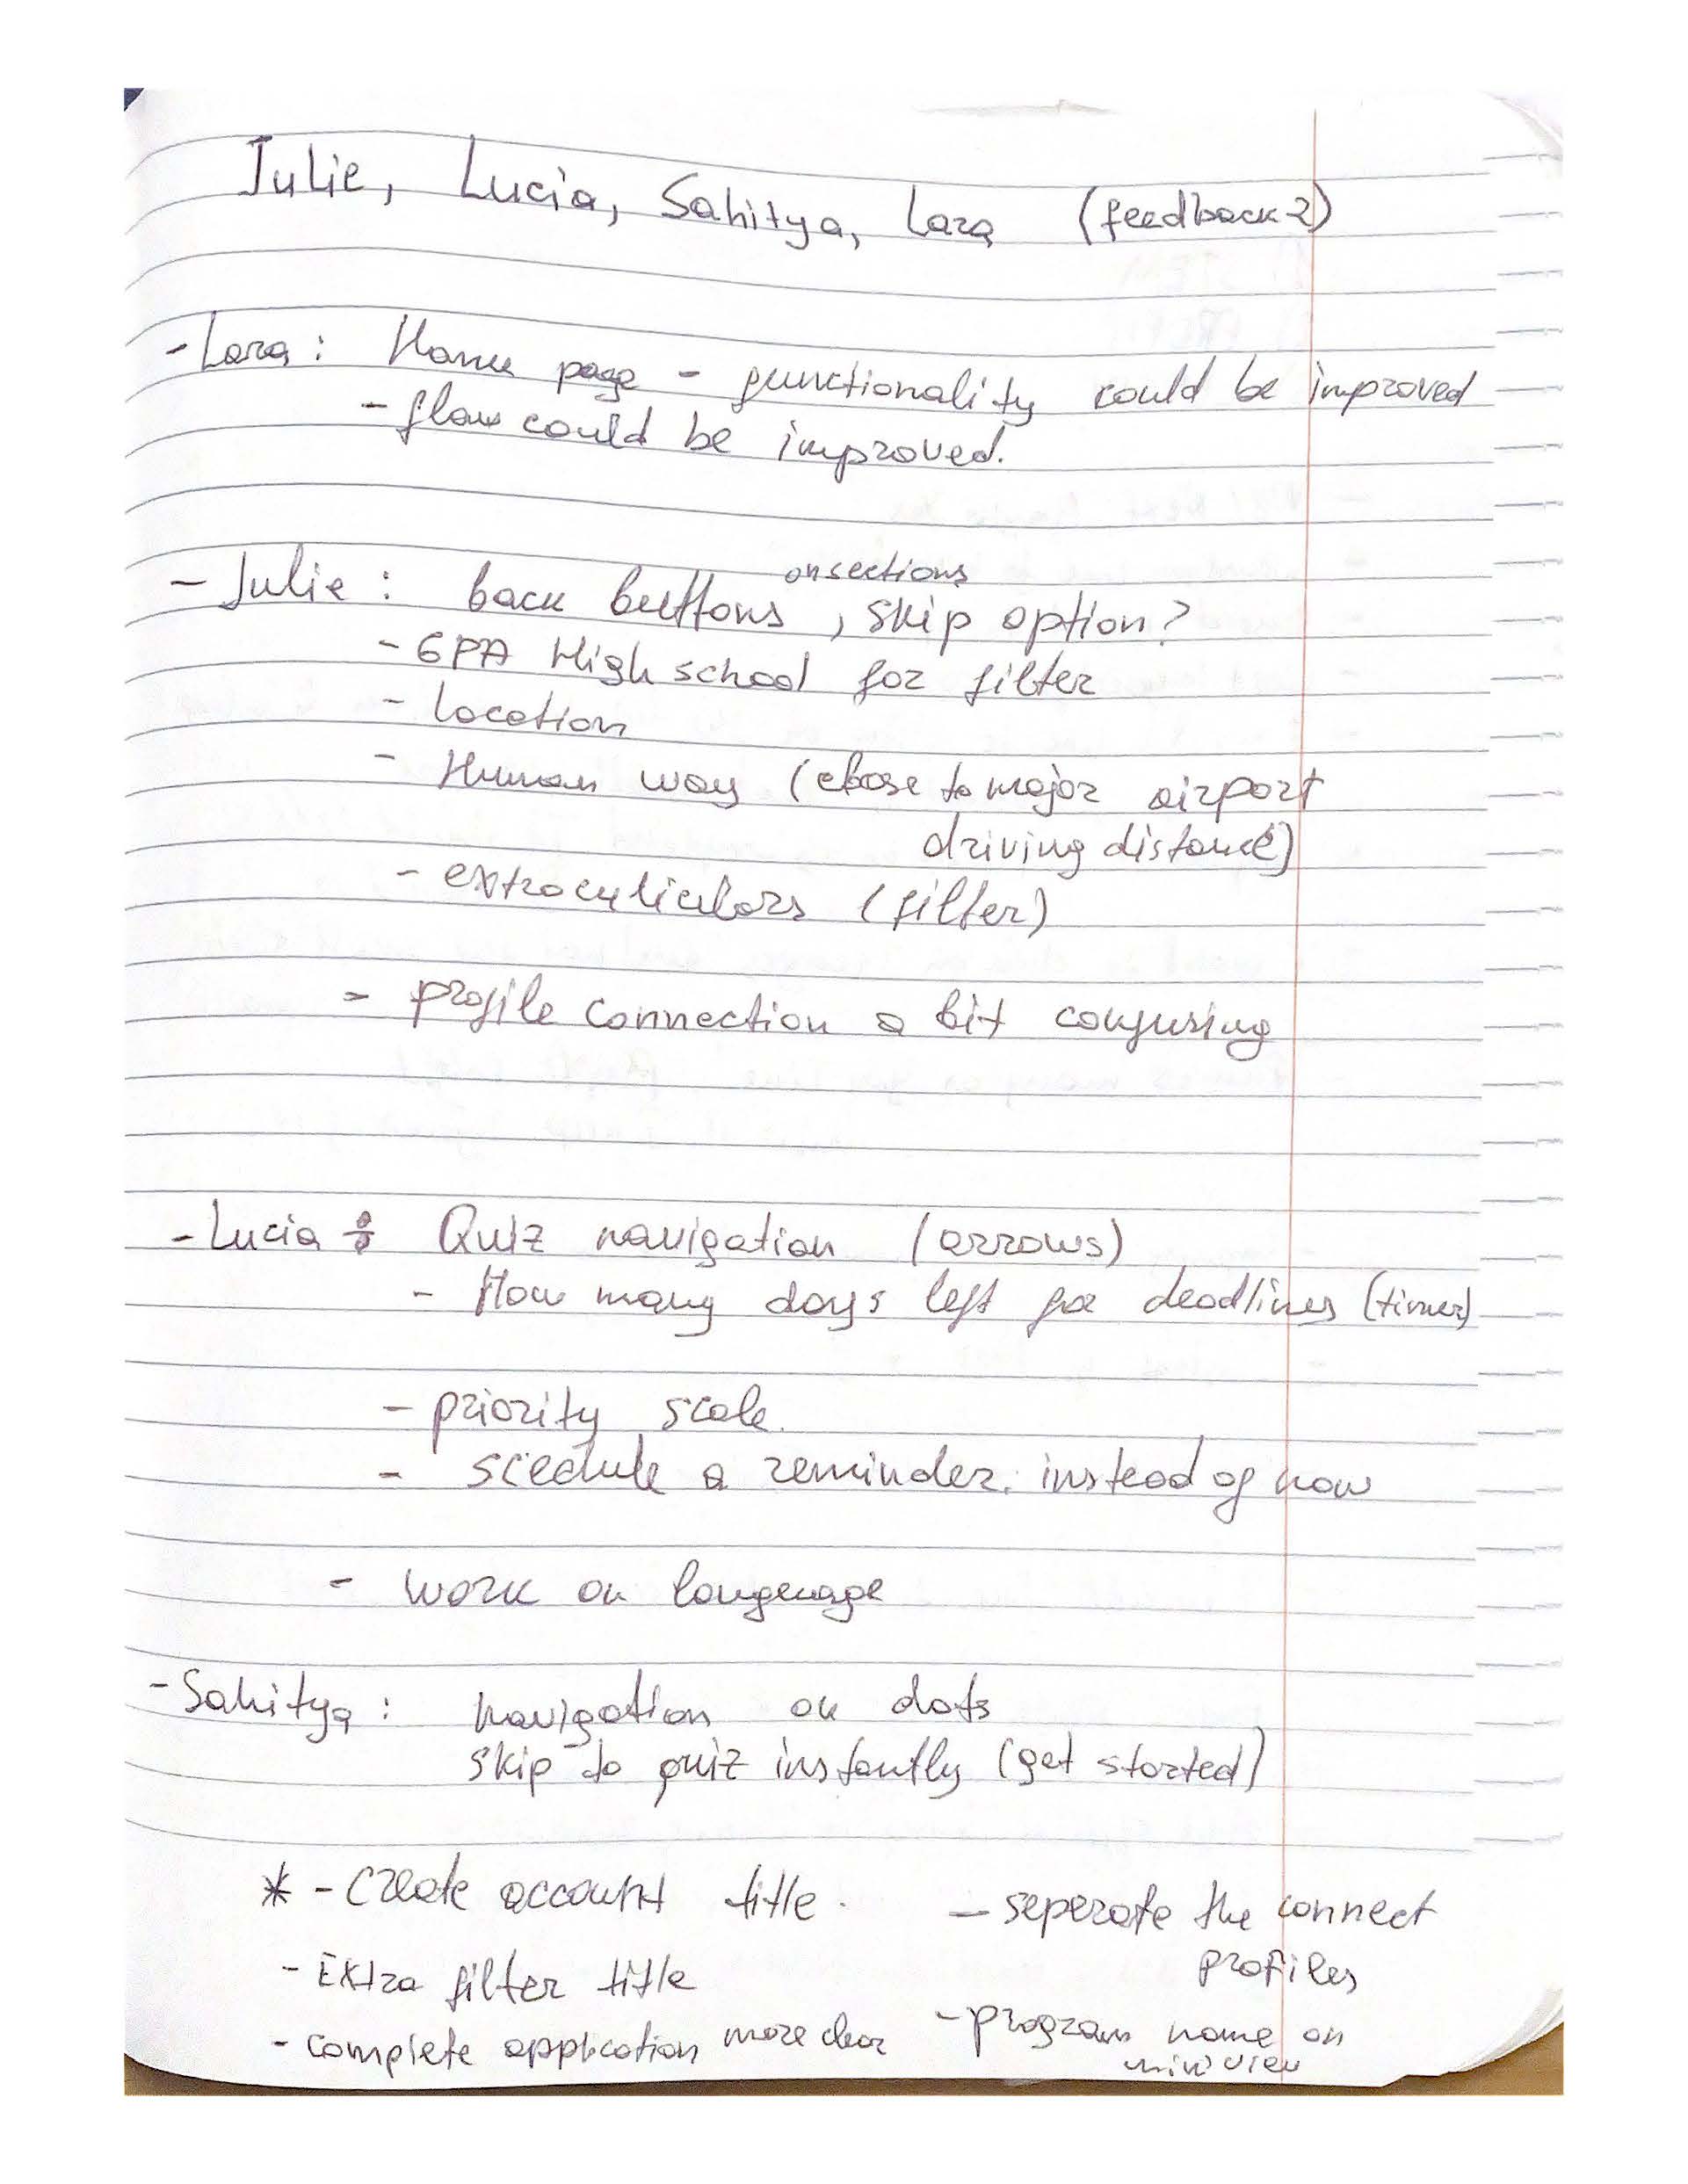 Julie, Lucia, Sahitya, Lara (feedback 2)
- Lara: Home page - functionality could be improved
- flow could be improved.
onsections
- Julie: back buttons, skip option?
- GPA High school for filter
- Location
- Human way (close to major airport
driving distance)
- extraculiculars (filter)
- profile connection a bit confusing
- Lucia: Quiz navigation (arrows)
- How many days left for deadlines (timer)
- priority scale.
- scedule a reminder. instead of now
- work on language
- Sahitya: navigation on dots
skip to quiz instantly (get started)
* - Create account title.
- Extra filter title
- complete application more clear
- seperate the connect
profiles
- program name on
mini view